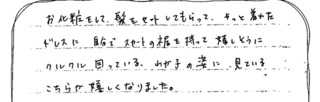 お化粧をして、髪をセットしてもらって、やっと着れた
ドレスに 自分でスカートの裾を持って嬉しそうに
クルクル回っている、わが子の姿に 見ている
こちらが嬉しくなりました。